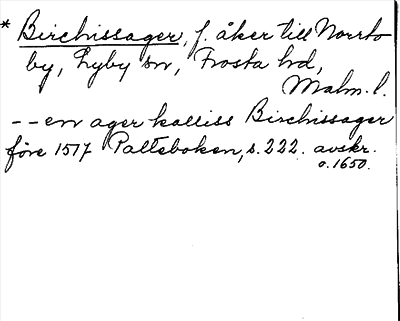 * Birchissager, f. åker till Norrto
by, Lyby sn, Frosta hd,
Malm. l.
-- en ager kalliss Birchissager
före 1517 Palteboken, s. 222. avskr.
o. 1650.